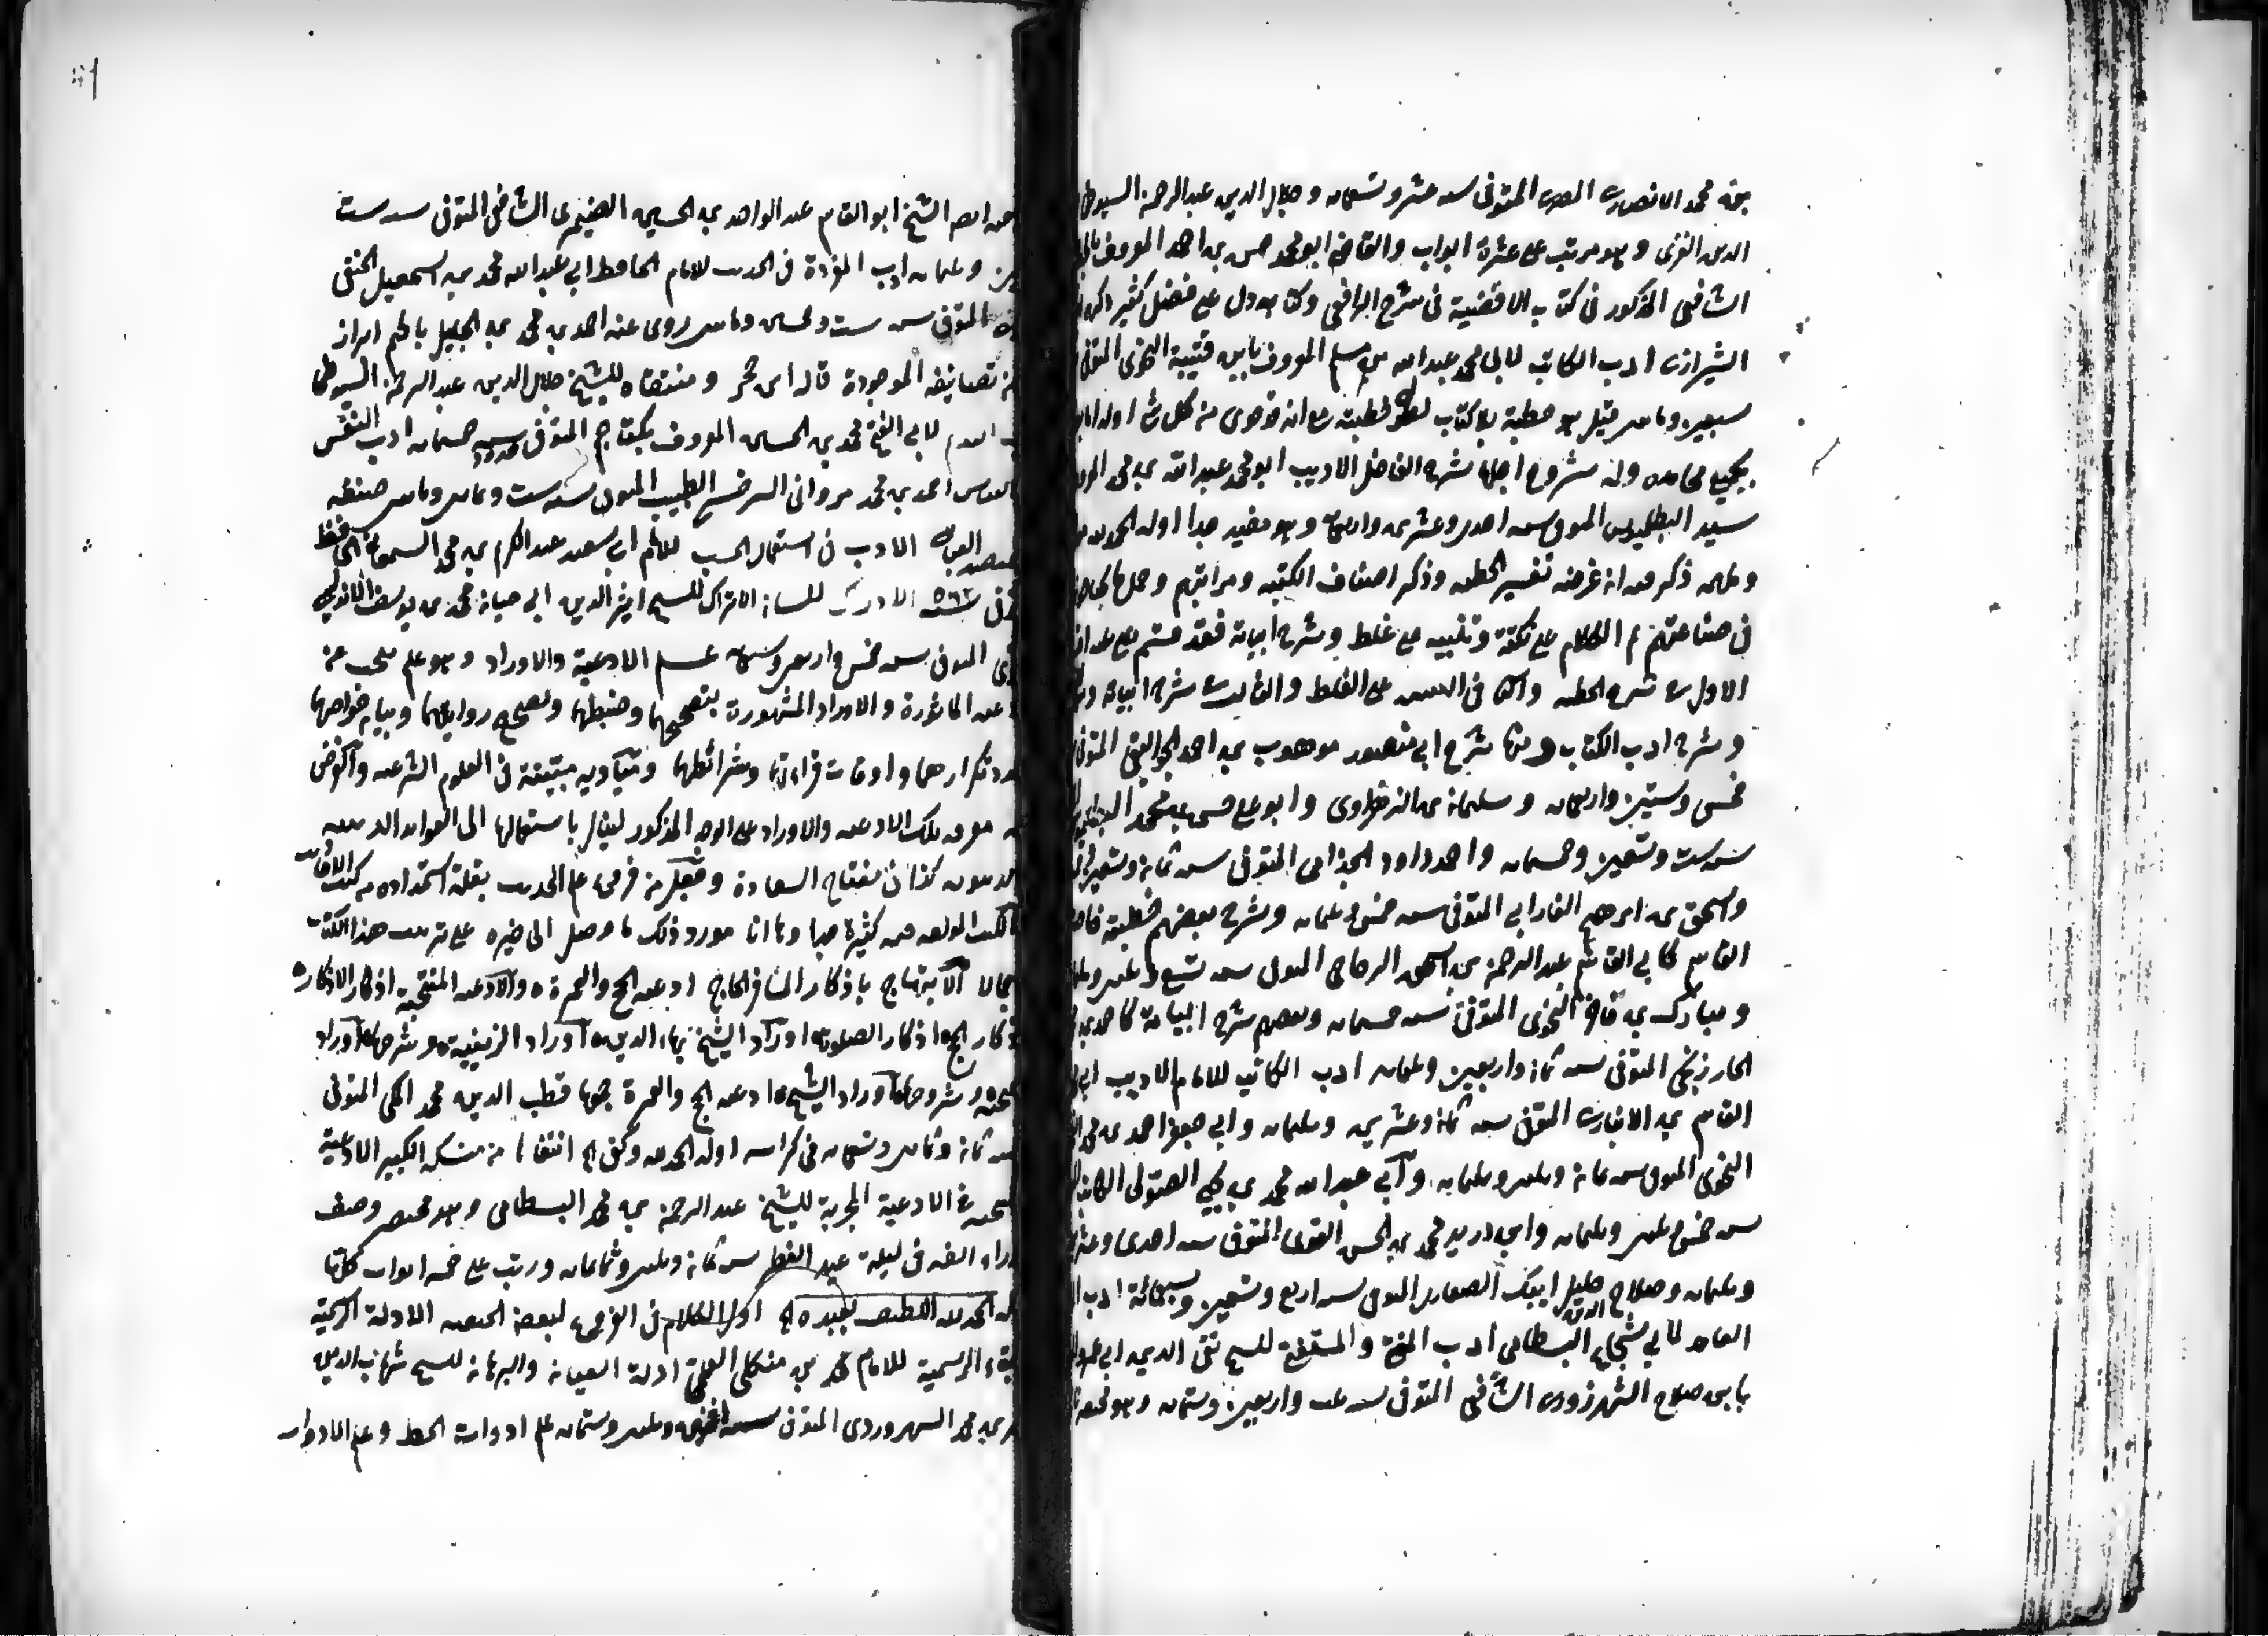 محمد الانصاري المصري المتوفى سنة عشر وتسعمائة وجلال الدين عبد الرحمن السيوطي
الدين الغزي وهو مرتب على عشرة ابواب والقاضي ابو محمد حسن بن احمد المعروف
الشافعي المذكور في كتاب الاقضية في شرح الرافعي وكتابه دل على فضل كثير ذكره
الشيرازي ادب الكاتب لابي محمد عبد الله بن مسلم المعروف بابن قتيبة النحوي المتوفى
سبعين ومائتين قيل هو خطبة بلا كتاب لطول خطبته مع انه قد حوى من كل شيء اوله اما بعد
بجميع محامده وله شروح اجلها شرح الفاضل الاديب ابو محمد عبد الله بن محمد
سيد البطليوسي المتوفى سنة احدى وعشرين واربعمائة وهو مفيد جدا اوله الحمد لله
ذكر فيه ان غرضه تفسير الخطبة وذكر اصناف الكتبة ومراتبهم وجمل
في صناعتهم ثم الكلام على نكتة وتنبيه على غلط وشرح ابياته فقد قسم على
الاول في شرح الخطبة والثاني في التنبيه على الغلط والثالث في شرح ابياته
وشرح ادب الكتاب ومنها شرح ابي منصور موهوب بن احمد الجواليقي المتوفى
خمس وستين واربعمائة وسليمان بن الزهراوي وابو علي حسن بن محمد البطليوسي
سنة ست وتسعين وخمسمائة واحمد داود الجذامي المتوفى سنة ثمان وتسعين
واسحق بن ابرهيم الفارابي المتوفى سنة خمسين وثلثمائة وشرح بعضهم خطبته خاصة
القاسم كابي القاسم عبد الرحمن بن اسحق الزجاجي المتوفى سنة تسع وثلثين
ومبارك بن فاخر النحوي المتوفى سنة خمسمائة وبعضهم شرح ابياته كاحمد بن
الخارزنجي المتوفى سنة ثمان واربعين وثلثمائة ادب الكاتب للامام الاديب ابي
القاسم بن الانباري المتوفى سنة ثمان وعشرين وثلثمائة وابي جعفر احمد بن محمد
النحوي المتوفى سنة ثمان وثلثين وثلثمائة وابي عبد الله محمد بن يحيى الصولي الكاتب
سنة خمس وثلثين وثلثمائة وابي دريد محمد بن الحسن اللغوي المتوفى سنة احدى وعشرين
وثلثمائة وصلاح الدين خليل ايبك الصفدي المتوفى سنة اربع وتسعين وسبعمائة ادب
لابي شجاع البسطامي ادب المفتي والمستفتي للشيخ تقي الدين ابي عمرو
بابن صلاح الشهرزوري الشافعي المتوفى سنة واربعين وستمائة وهو مختصر
ايضا الشيخ ابو القاسم عبد الواحد بن الحسين الصيمري الشافعي المتوفى سنة ست
وثلثمائة ادب المفردة في الحديث للامام الحافظ ابي عبد الله محمد بن اسمعيل الجعفي
المتوفى سنة ست وخمسين ومائتين روى عنه احمد بن محمد بن الجليل بالجيم البزاز
من تصانيفه الموجودة قاله ابن حجر ومنتقاه للشيخ جلال الدين عبد الرحمن السيوطي
لابي الفتح محمد بن الحسين المعروف بكشاجم المتوفى حدود سنة خمسمائة ادب النفس
العباس احمد بن محمد مرواني السرخسي الطبيب المتوفى سنة ست وثمانين ومائتين صنفه
الادب في استعمال الحسب للامام ابي سعيد عبد الكريم بن محمد السمعاني الحافظ
٥٦٢ الادراك للسان الاتراك للشيخ اثير الدين ابي حيان محمد بن يوسف الاندلسي
المتوفى سنة خمس واربعين وسبعمائة علم الادعية والاوراد وهو علم يبحث عن
الادعية الماثورة والاوراد المشهورة بتصحيحهما وضبطهما وتصحيح روايتهما وبيان خواصهما
وعدد تكرارهما واوقات قراءتهما وشرائطهما ومباديه مبينة في العلوم الشرعية والغرض
منه معرفة تلك الادعية والاوراد على الوجه المذكور لينال باستعمالها الى الفوائد الدينية
والدنيوية كذا في مفتاح السعادة وجعله من فروع علم الحديث بعلة استمداده من كتب الاحاديث
والكتب المؤلفة فيه كثيرة جدا وها انا مورد ذلك ما وصل الى خبره على ترتيب هذا الكتاب
اجمالا الابتهاج باذكار المسافر الحاج ادعية الحج والعمرة والادعية المنتخبة اذكار الاذكار
اذكار الحج اذكار الصلوة اوراد الشيخ بهاء الدين اوراد الزينية وشرحها اوراد
وشروحها اوراد الشيخ ادعية الحج والعمرة جمعها قطب الدين محمد المكي المتوفى
سنة ثمان وثمانين وتسعمائة في كراسة اوله الحمد لله وكفى الخ انتقاها من منسكه الكبير الادعية
المنتخبة في الادعية المجربة للشيخ عبد الرحمن بن محمد البسطامي وهو مختصر وصف
الفه في ليلة عيد الفطر سنة ثمان وثلثين وثمانمائة ورتب على خمسة ابواب كلها
اوله الحمد لله اللطيف بعبيده الخ اوله الكلام في الفرج لبعض الادلة الرسمية
الرسمية للامام محمد بن منكلي العلمي ادلة العيان والبرهان للشيخ شهاب الدين
عمر بن محمد السهروردي المتوفى سنة اثنين وثلثين وستمائة علم ادوات الخط وعلم الادوار